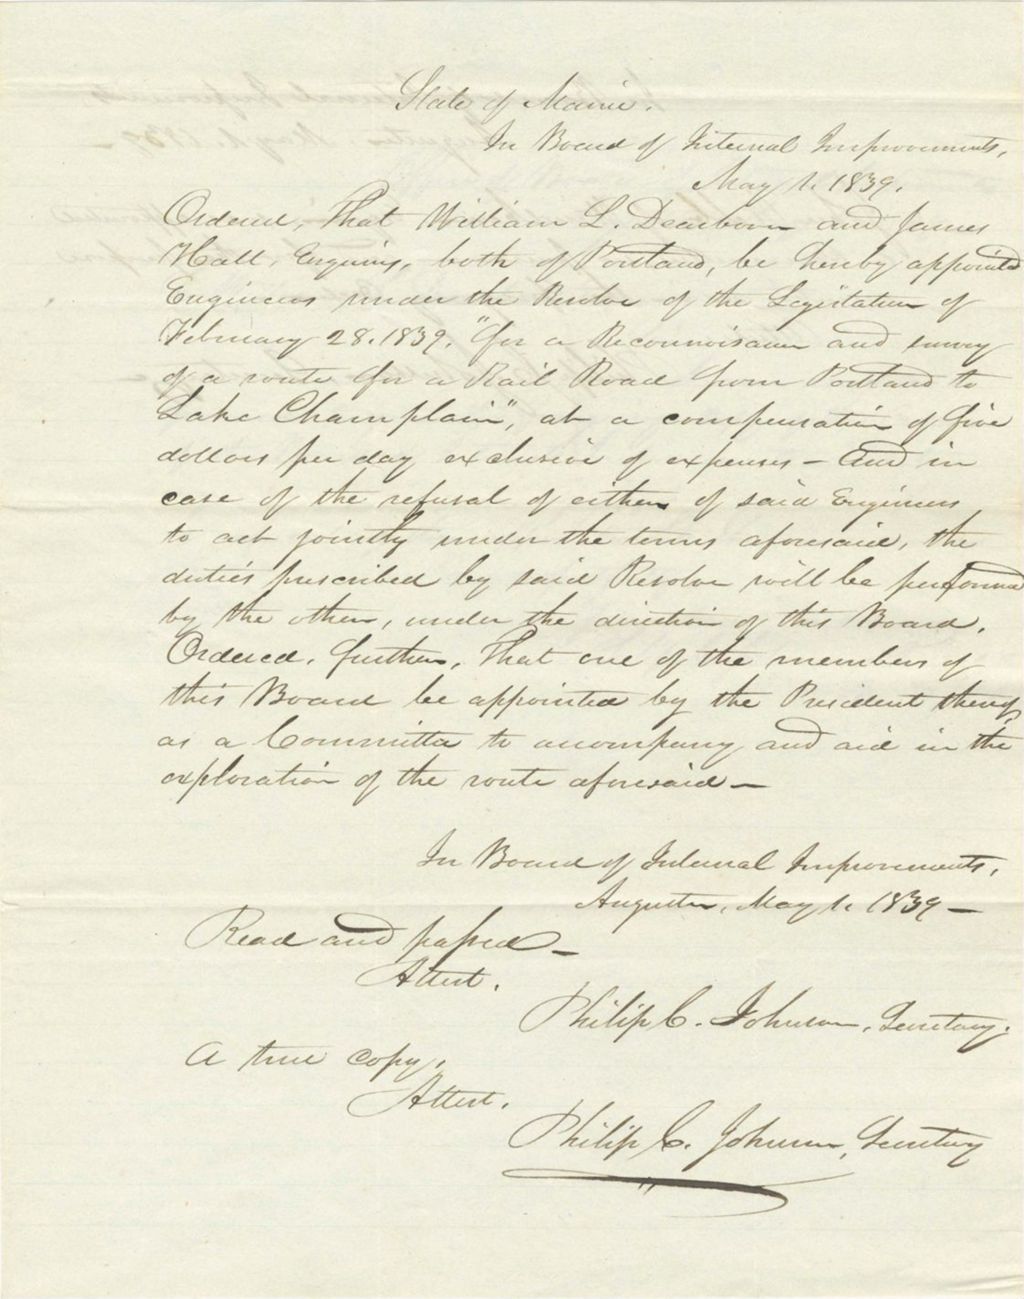 State of Maine.
In Board of Internal Improvements,
May 1. 1839.
Ordered, That William L. Dearborn and James
Hall, Esquires, both of Portland, be hereby appointed
Engineers under the Resolve of the Legislature of
February 28. 1839. "for a Reconnoisance and survey
of a route for a Rail Road from Portland to
Lake Champlain", at a compensation of five
dollars per day exclusive of expenses - And in
case of the refusal of either of said Engineers
to act jointly under the terms aforesaid, the
duties prescribed by said Resolve will be performed
by the other, under the direction of this Board.
Ordered, further, That one of the members of
this Board be appointed by the President thereof,
as a Committee to accompany and aid in the
exploration of the route aforesaid -
In Board of Internal Improvements,
Augusta, May 1. 1839 -
Read and passed -
Attest.
Philip C. Johnson, Secretary.
A true copy,
Attest.
Philip C. Johnson, Secretary